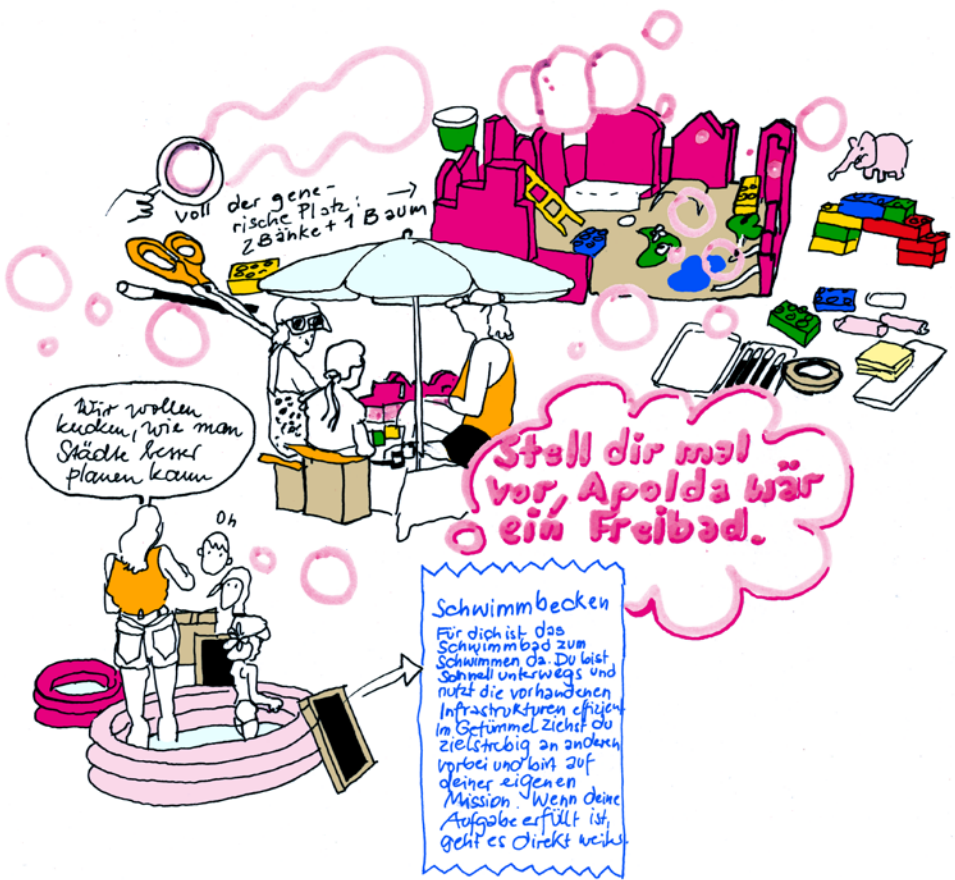 voll der gene-
rische Platz:
2 Bänke + 1 Baum
Wir wollen
kucken, wie man
Städte besser
planen kann
Oh
Stell dir mal
vor, Apolda wär
ein Freibad.
Schwimmbecken
Für dich ist das
Schwimmbad zum
Schwimmen da. Du bist
schnell unterwegs und
nutzt die vorhandenen
Infrastrukturen effizient
Im Getümmel ziehst du
zielstrebig an anderen
vorbei und bist auf
deiner eigenen
Mission. Wenn deine
Aufgabe erfüllt ist,
geht es direkt weiter.